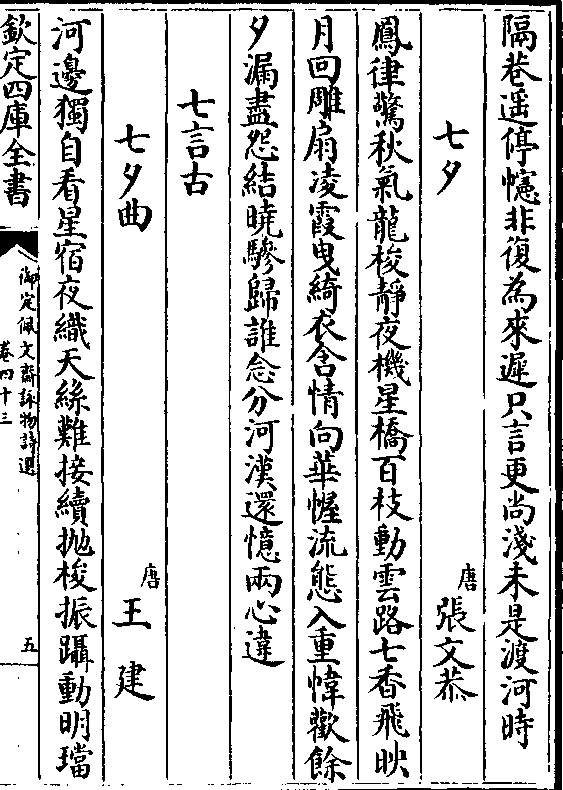 隔巷遥停幰非復為來遲只言更尚淺未是渡河時
七夕
唐張文恭
鳳律驚秋氣龍梭靜夜機星橋百枝動雲路七香飛映
月回雕扇凌霞曳綺衣含情向華幄流態入重幃歡餘
夕漏盡怨結曉驂歸誰念分河漢還憶兩心違
七言古
七夕曲
唐王建
河邊獨自看星宿夜織天絲難接續抛梭振躡動明璫
欽定四庫全書
御定佩文齋詠物詩選
卷四十三
五